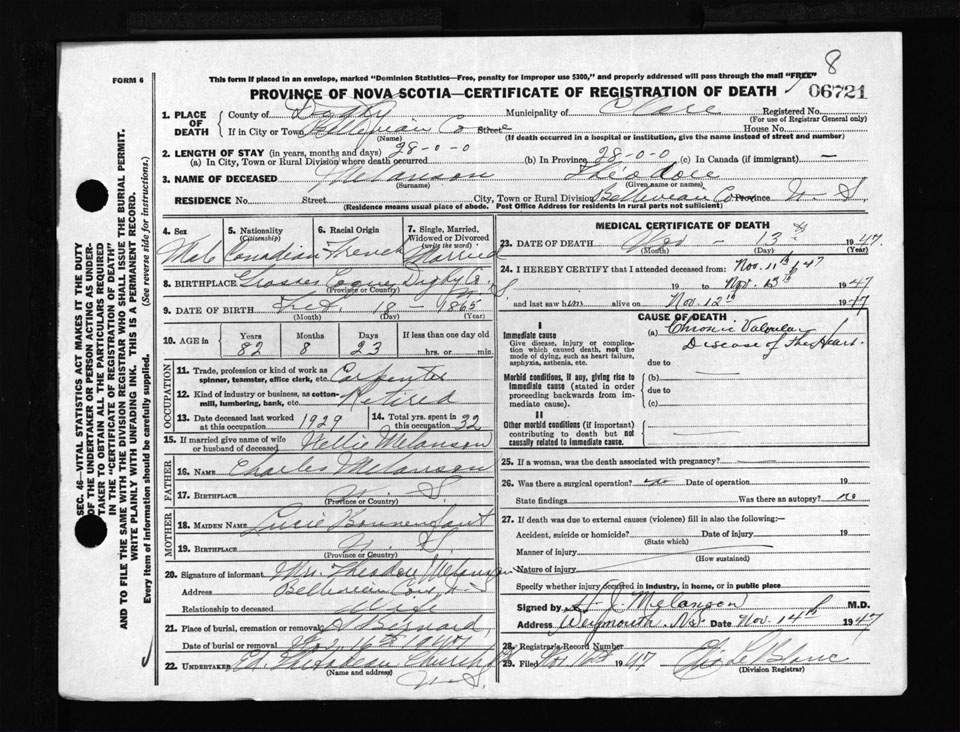 8
FORM 6
This form if placed in an envelope, marked "Dominion Statistics—Free, penalty for improper use $300," and properly addressed will pass through the mail "FREE"
PROVINCE OF NOVA SCOTIA—CERTIFICATE OF REGISTRATION OF DEATH
06721
1. PLACE OF DEATH
County of Digby Municipality of Clare Registered No.
(For use of Registrar General only)
If in City or Town Belliveau Cove Street House No.
(Name) (If death occurred in a hospital or institution, give the name instead of street and number)
2. LENGTH OF STAY (in years, months and days)
(a) In City, Town or Rural Division where death occurred 28-0-0 (b) In Province 28-0-0 (c) In Canada (if immigrant) —
3. NAME OF DECEASED Melanson Théodore
(Surname) (Given name or names)
RESIDENCE No. Street City, Town or Rural Division Belliveau Co Province N. S.
(Residence means usual place of abode. Post Office Address for residents in rural parts not sufficient)
4. Sex 5. Nationality (Citizenship) 6. Racial Origin 7. Single, Married, Widowed or Divorced (write the word)
Male Canadian French Married
8. BIRTHPLACE Grosses Coques Digby Co. N S
(Province or Country)
9. DATE OF BIRTH Feb. 18 - 1865
(Month) (Day) (Year)
10. AGE in Years Months Days If less than one day old
82 8 23 hrs. or min.
OCCUPATION
11. Trade, profession or kind of work as spinner, teamster, office clerk, etc. Carpenter
12. Kind of industry or business, as cotton-mill, lumbering, bank, etc. Retired
13. Date deceased last worked at this occupation 1929 14. Total yrs. spent in this occupation 32
15. If married give name of wife or husband of deceased Nellie Melanson
FATHER
16. NAME Charles Melanson
17. BIRTHPLACE N. S.
(Province or Country)
MOTHER
18. MAIDEN NAME Lucie Bonnenfant
19. BIRTHPLACE N. S.
(Province or Country)
20. Signature of informant Mrs. Theodore Melanson
Address Belliveau Cove N. S
Relationship to deceased Wife
21. Place of burial, cremation or removal St Bernard
Date of burial or removal Nov. 16th 1947
22. UNDERTAKER Ed. Church Pt
(Name and address) N. S.
MEDICAL CERTIFICATE OF DEATH
23. DATE OF DEATH Nov - 13th 1947
(Month) (Day) (Year)
24. I HEREBY CERTIFY that I attended deceased from Nov. 11th 47
19 to Nov. 13th 1947
and last saw him alive on Nov. 12th 1947
CAUSE OF DEATH
I
Immediate cause
Give disease, injury, or complication which caused death, not the mode of dying, such as heart failure, asphyxia, asthenia, etc.
(a) Chronic Valvular Disease of the Heart.
due to
Morbid conditions, if any, giving rise to immediate cause (stated in order proceeding backwards from immediate cause).
(b) —
due to
(c)
II
Other morbid conditions (if important) contributing to death but not causally related to immediate cause.
25. If a woman, was the death associated with pregnancy? —
26. Was there a surgical operation? no Date of operation 19
State findings Was there an autopsy? no
27. If death was due to external causes (violence) fill in also the following:—
Accident, suicide or homicide? Date of injury 19
(State which)
Manner of injury
(How sustained)
Nature of injury
Specify whether injury occurred in industry, in home, or in public place
Signed by H. J. Melanson M.D.
Address Weymouth. N.S. Date Nov. 14th 1947
28. Registrar's Record Number
29. Filed Nov. 16th 1947
(Division Registrar)
SEC. 46—VITAL STATISTICS ACT MAKES IT THE DUTY
OF THE UNDERTAKER OR PERSON ACTING AS UNDER-
TAKER TO OBTAIN ALL THE PARTICULARS REQUIRED
IN THE "CERTIFICATE OF REGISTRATION OF DEATH"
AND TO FILE THE SAME WITH THE DIVISION REGISTRAR WHO SHALL ISSUE THE BURIAL PERMIT.
WRITE PLAINLY WITH UNFADING INK. THIS IS A PERMANENT RECORD.
Every item of information should be carefully supplied. (See reverse side for instructions.)